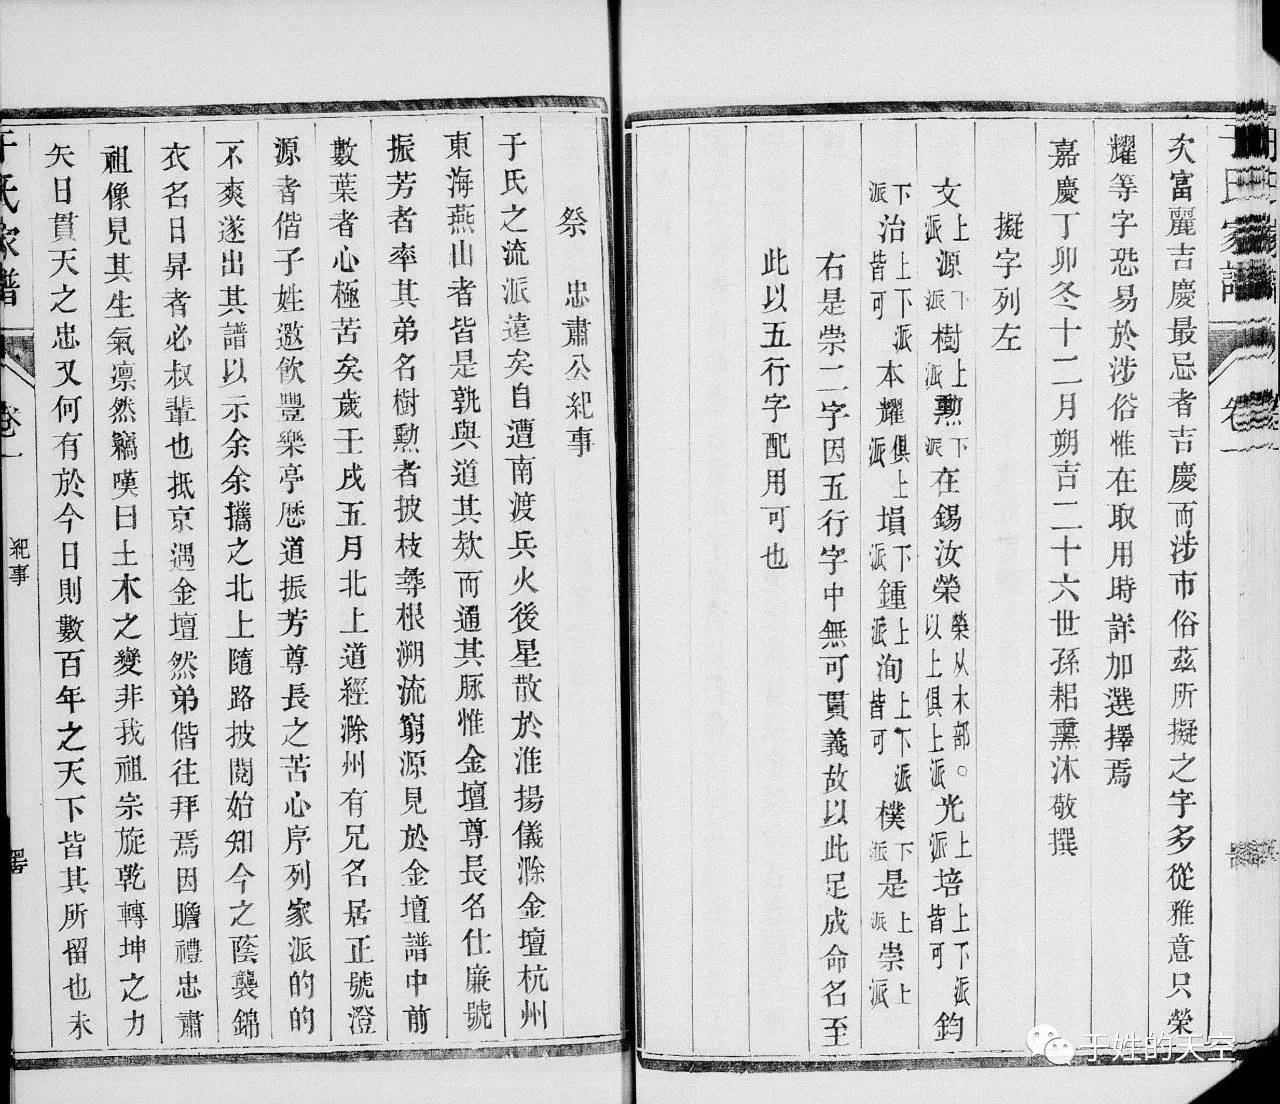 于氏家譜
次富麗吉慶最忌者吉慶而涉市俗茲所擬之字多從雅意只榮
耀等字恐易於涉俗惟在取用時詳加選擇焉
嘉慶丁卯冬十二月朔吉二十六世孫耜熏沐敬撰
擬字列左
文上派源下派樹上派勲下派在錫汝榮榮从木部。以上俱上派光上派培上下派皆可鈞
下派治上下派皆可本耀俱上派塤下派鍾上派洵上下派皆可樸下派是上派崇上派
右是崇二字因五行字中無可貫義故以此足成命名至
此以五行字配用可也
祭 忠肅公紀事
于氏之流派遠矣自遭南渡兵火後星散於淮揚儀滁金壇杭州
東海燕山者皆是孰與道其欵而通其脈惟金壇尊長名仕廉號
振芳者率其弟名樹勲者披枝尋根溯流窮源見於金壇譜中前
數葉者心極苦矣歲壬戌五月北上道經滁州有兄名居正號澄
源者偕子姓邀飲豐樂亭歴道振芳尊長之苦心序列家派的的
不爽遂出其譜以示余余攜之北上隨路披閱始知今之蔭襲錦
衣名日昇者必叔輩也抵京遇金壇然弟偕往拜焉因瞻禮忠肅
祖像見其生氣凛然竊嘆曰土木之變非我祖宗旋乾轉坤之力
矢日貫天之忠又何有於今日則數百年之天下皆其所留也未
于氏家譜
卷一
紀事
于姓的天空